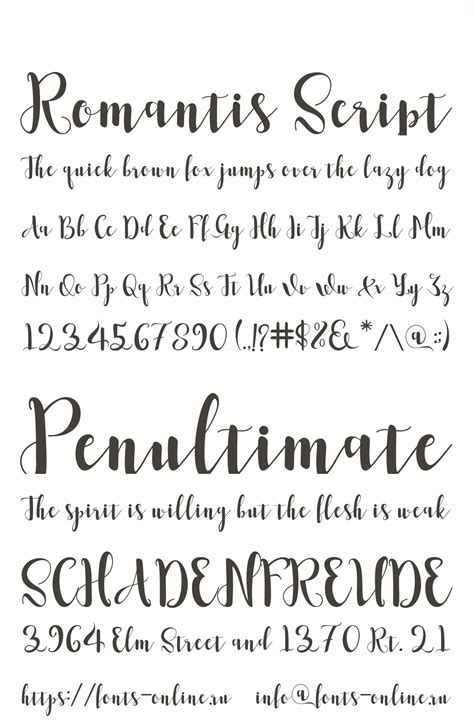 Romantis Script
The quick brown fox jumps over the lazy dog
Aa Bb Cc Dd Ee Ff Gg Hh Ii Jj Kk Ll Mm
Nn Oo Pp Qq Rr Ss Tt Uu Vv Ww Xx Yy Zz
1234567890(.,!?#$%&*/\@:;)
Penultimate
The spirit is willing but the flesh is weak
SCHADENFREUDE
3964 Elm Street and 1370 Rt. 21
https://fonts-online.ru info@fonts-online.ru